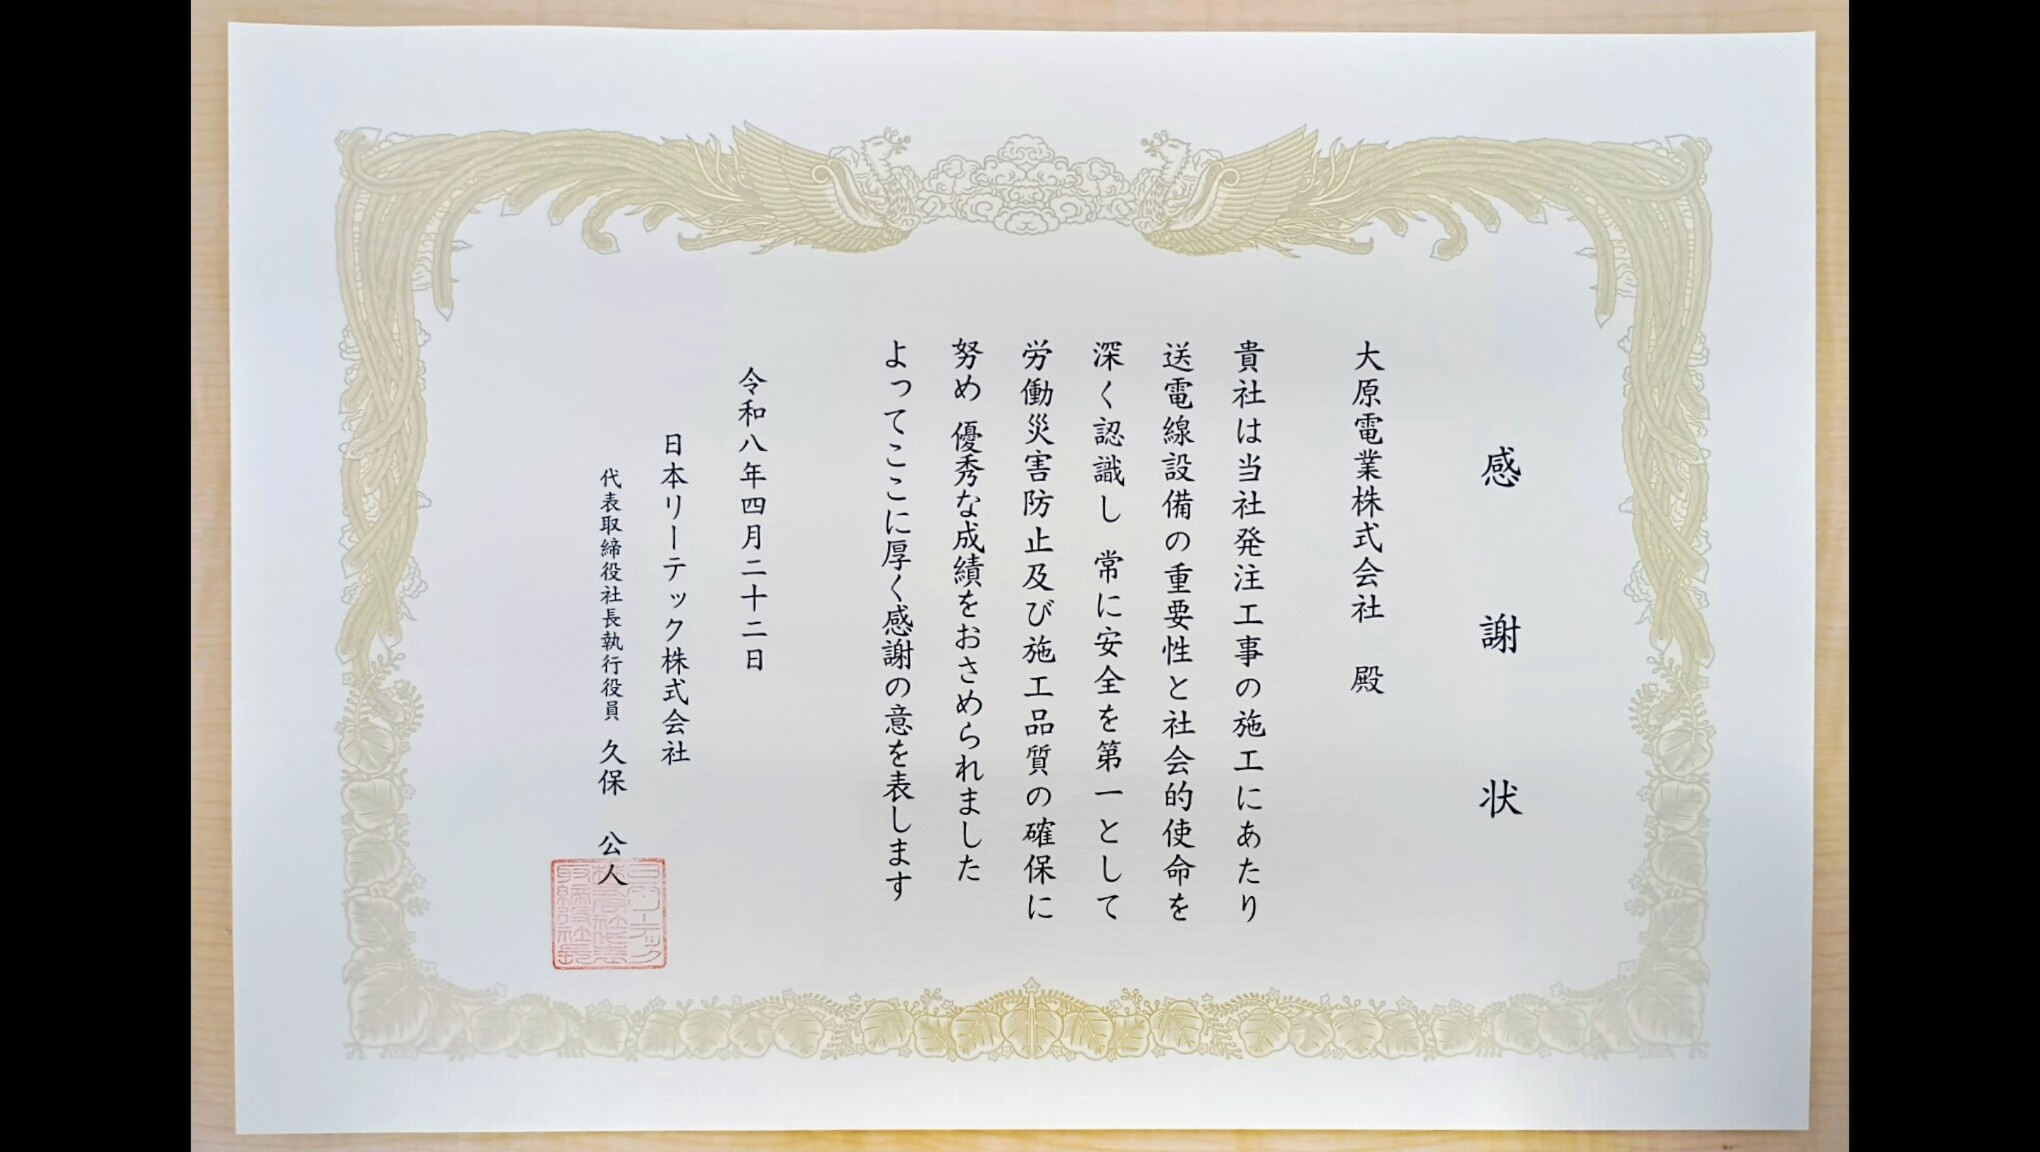 感謝状
大原電業株式会社 殿
貴社は当社発注工事の施工にあたり
送電線設備の重要性と社会的使命を
深く認識し 常に安全を第一として
労働災害防止及び施工品質の確保に
努め 優秀な成績をおさめられました
よってここに厚く感謝の意を表します
令和八年四月二十二日
日本リーテック株式会社
代表取締役社長執行役員 久保 公人